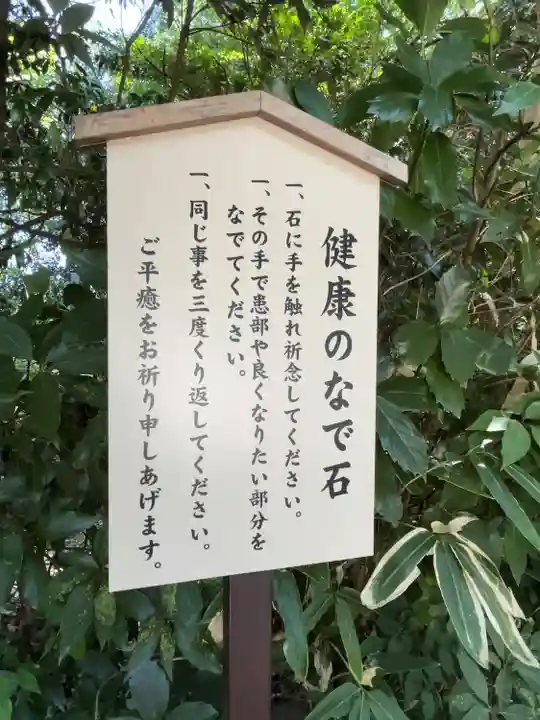 健康のなで石
一、石に手を触れ祈念してください。
一、その手で患部や良くなりたい部分を
なでてください。
一、同じ事を三度くり返してください。
ご平癒をお祈り申しあげます。